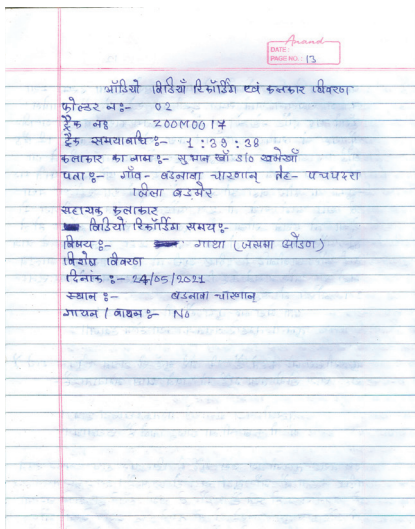 Anand
DATE :
PAGE NO. : 13
ऑडियो विडियों रिकॉर्डिंग एवं कलाकार विवरण
फोल्डर नः- 02
ट्रैक नः ZOOM0017
ट्रैक समयावधि :- 1:39:38
कलाकार का नाम :- सुभान खाँ S/o
पता :- गाँव- बडनावा चारणान् तेह- पचपदरा
जिला बाड़मेर
सहायक कलाकार
विडियो रिकॉर्डिंग समय :-
विषय :- गाथा (जसमा ओडण)
विशेष विवरण
दिनांक :- 24/05/2021
स्थान :- बडनावा चारणान्
गायन / वादन :- No